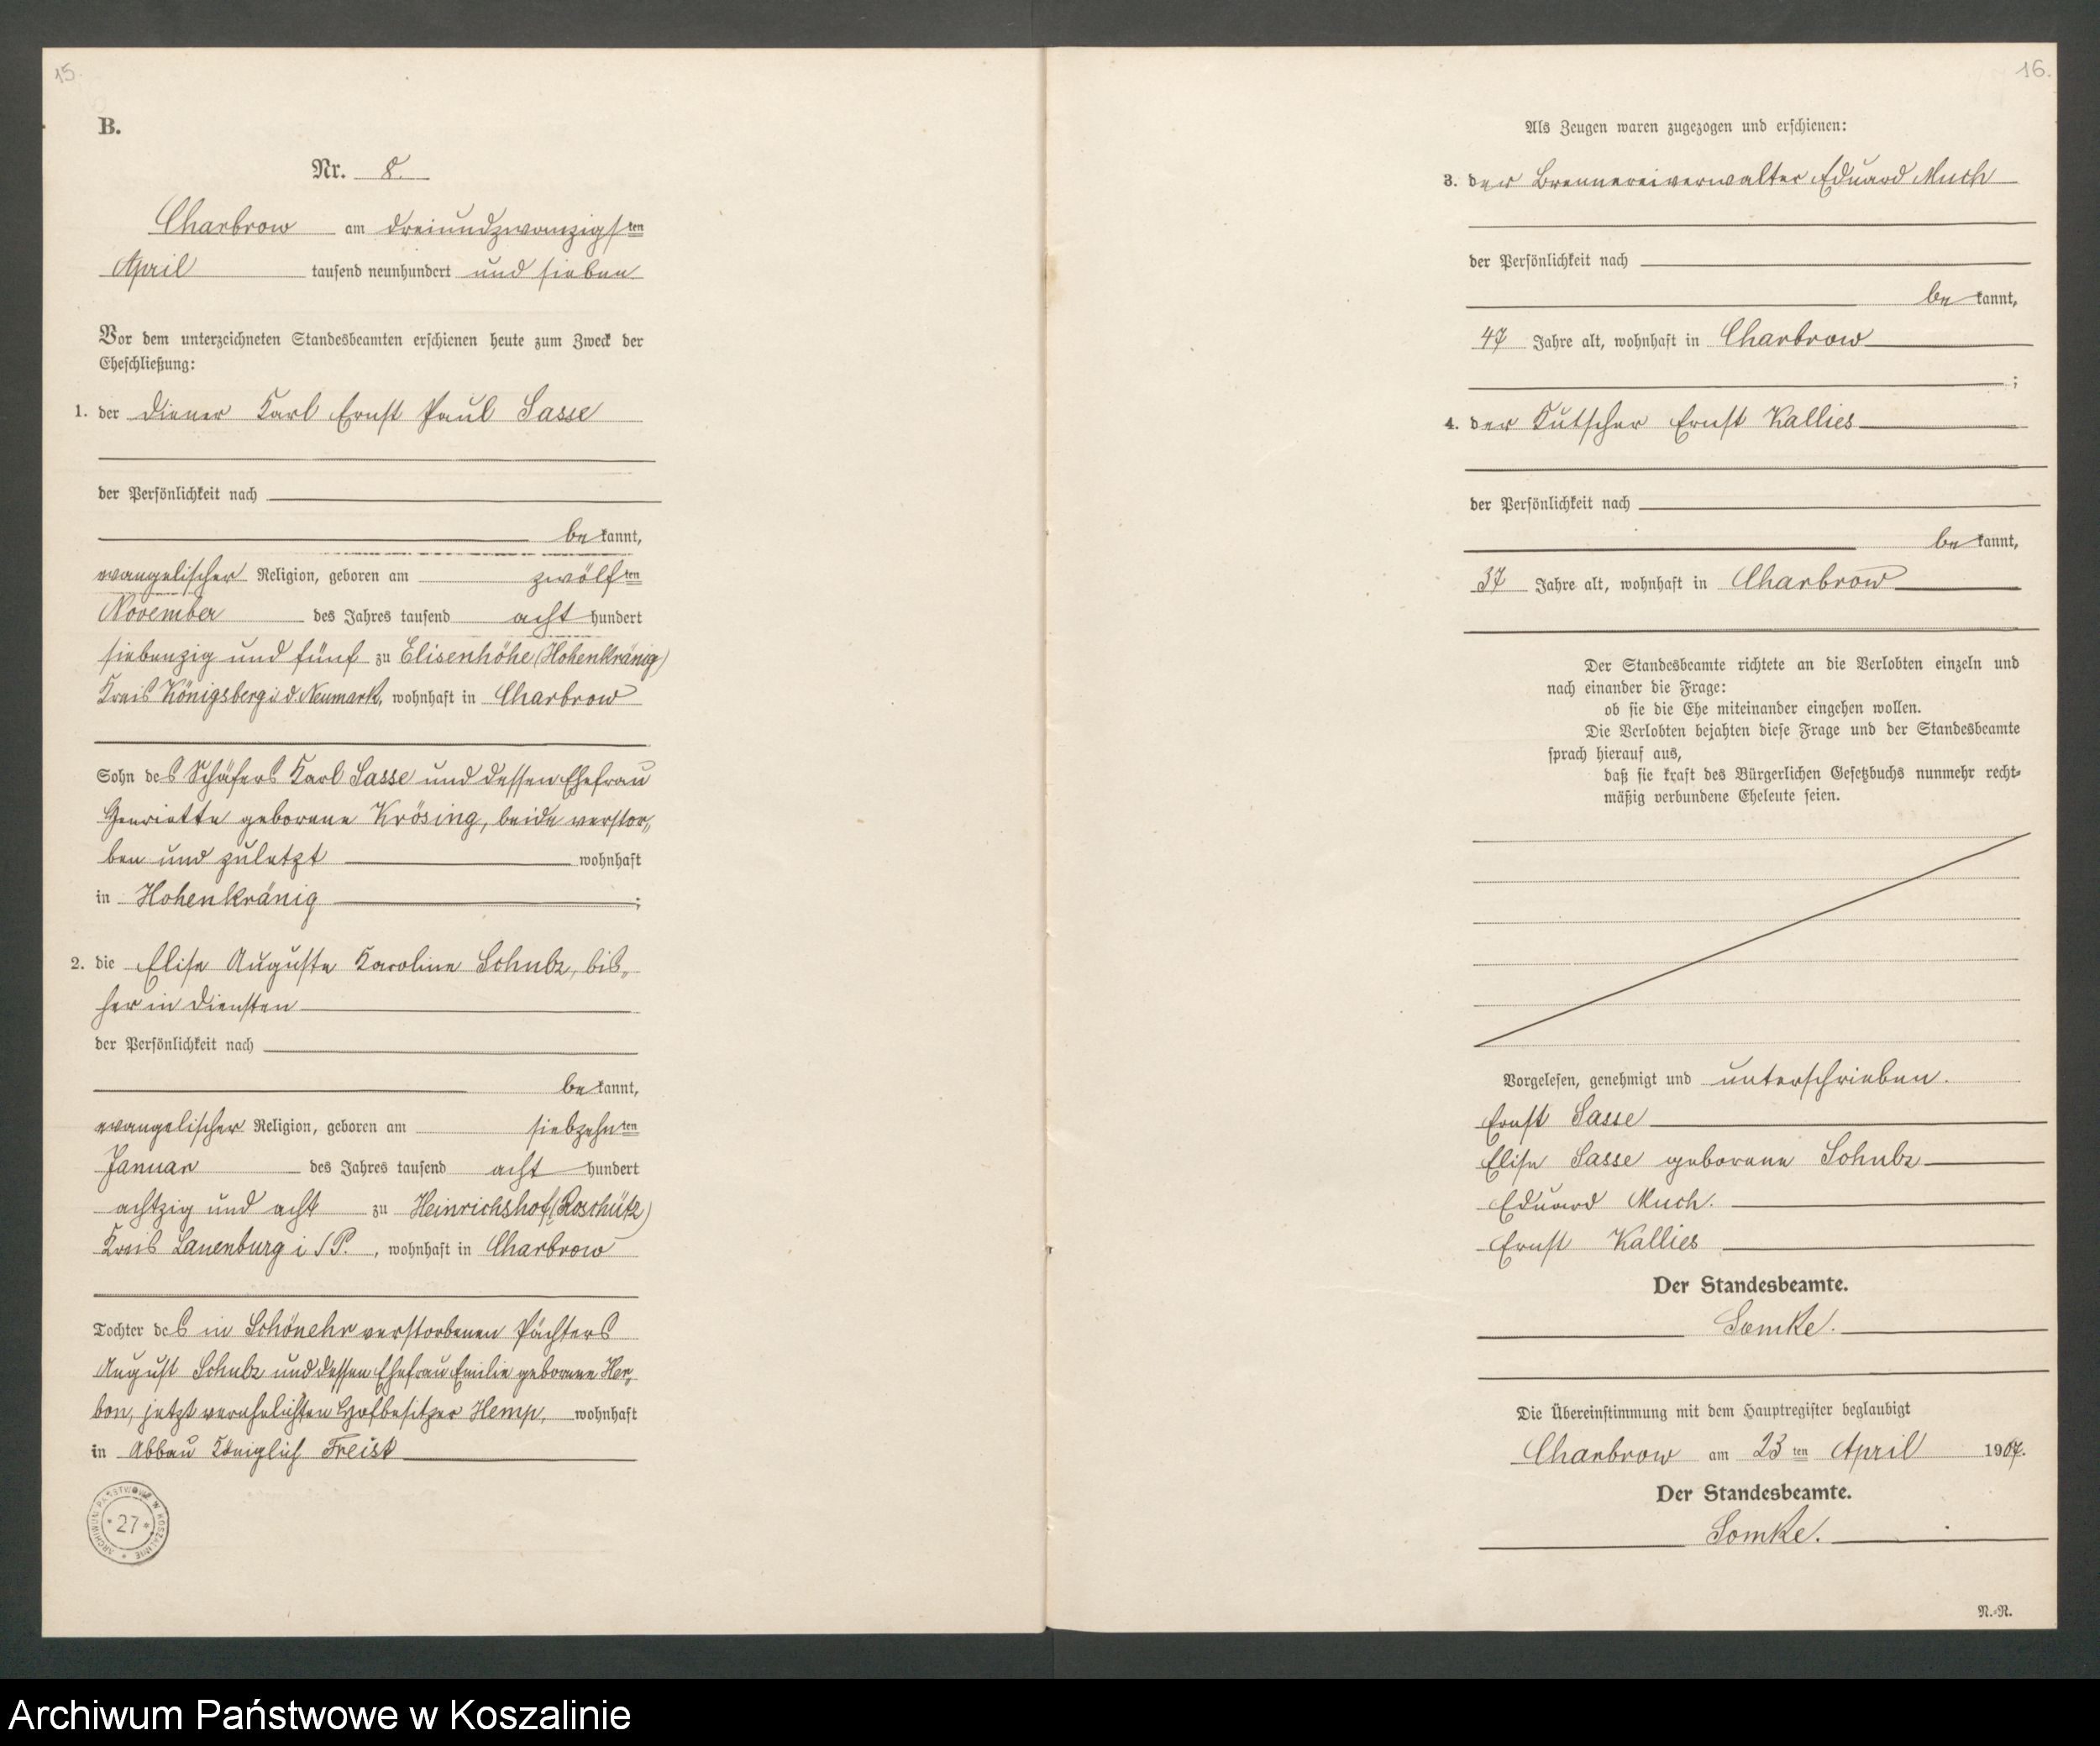 15.
B.
Nr. 8.
Charbrow am dreiundzwanzigsten
April tausend neunhundert und sieben
Vor dem unterzeichneten Standesbeamten erschienen heute zum Zweck der
Eheschließung:
1. der Diener Karl Ernst Paul Sasse
der Persönlichkeit nach
be kannt,
evangelischer Religion, geboren am zwölften
November des Jahres tausend acht hundert
siebenzig und fünf zu Elisenhöhe (Hohenkränig)
Kreis Königsberg i. d. Neumark, wohnhaft in Charbrow
Sohn des Schäfers Karl Sasse und dessen Ehefrau
Henriette geborene Krösing, beide verstor„
ben und zuletzt wohnhaft
in Hohenkränig ;
2. die Elise Auguste Karoline Schulz, bis„
her in Diensten
der Persönlichkeit nach
be kannt,
evangelischer Religion, geboren am siebzehnten
Januar des Jahres tausend acht hundert
achtzig und acht zu Heinrichshof (Roschütz)
Kreis Lauenburg i/P. , wohnhaft in Charbrow
Tochter des in Schönehr verstorbenen Pächters
August Schulz und dessen Ehefrau Emilie geborene Her„
bon, jetzt verehelichten Hofbesitzer Hemp, wohnhaft
in Abbau Königlich Freist
ARCHIWUM PAŃSTWOWE W KOSZALINIE * 27 *
16.
Als Zeugen waren zugezogen und erschienen:
3. der Brennereiverwalter Eduard Much
der Persönlichkeit nach
be kannt,
47 Jahre alt, wohnhaft in Charbrow
;
4. der Kutscher Ernst Kallies
der Persönlichkeit nach
be kannt,
37 Jahre alt, wohnhaft in Charbrow
Der Standesbeamte richtete an die Verlobten einzeln und
nach einander die Frage:
ob sie die Ehe miteinander eingehen wollen.
Die Verlobten bejahten diese Frage und der Standesbeamte
sprach hierauf aus,
daß sie kraft des Bürgerlichen Gesetzbuchs nunmehr recht-
mäßig verbundene Eheleute seien.
Vorgelesen, genehmigt und unterschrieben.
Ernst Sasse
Elise Sasse geborene Schulz
Eduard Much.
Ernst Kallies
Der Standesbeamte.
Somke.
Die Übereinstimmung mit dem Hauptregister beglaubigt
Charbrow am 23 ten April 1907.
Der Standesbeamte.
Somke.
N.-R.
Archiwum Państwowe w Koszalinie